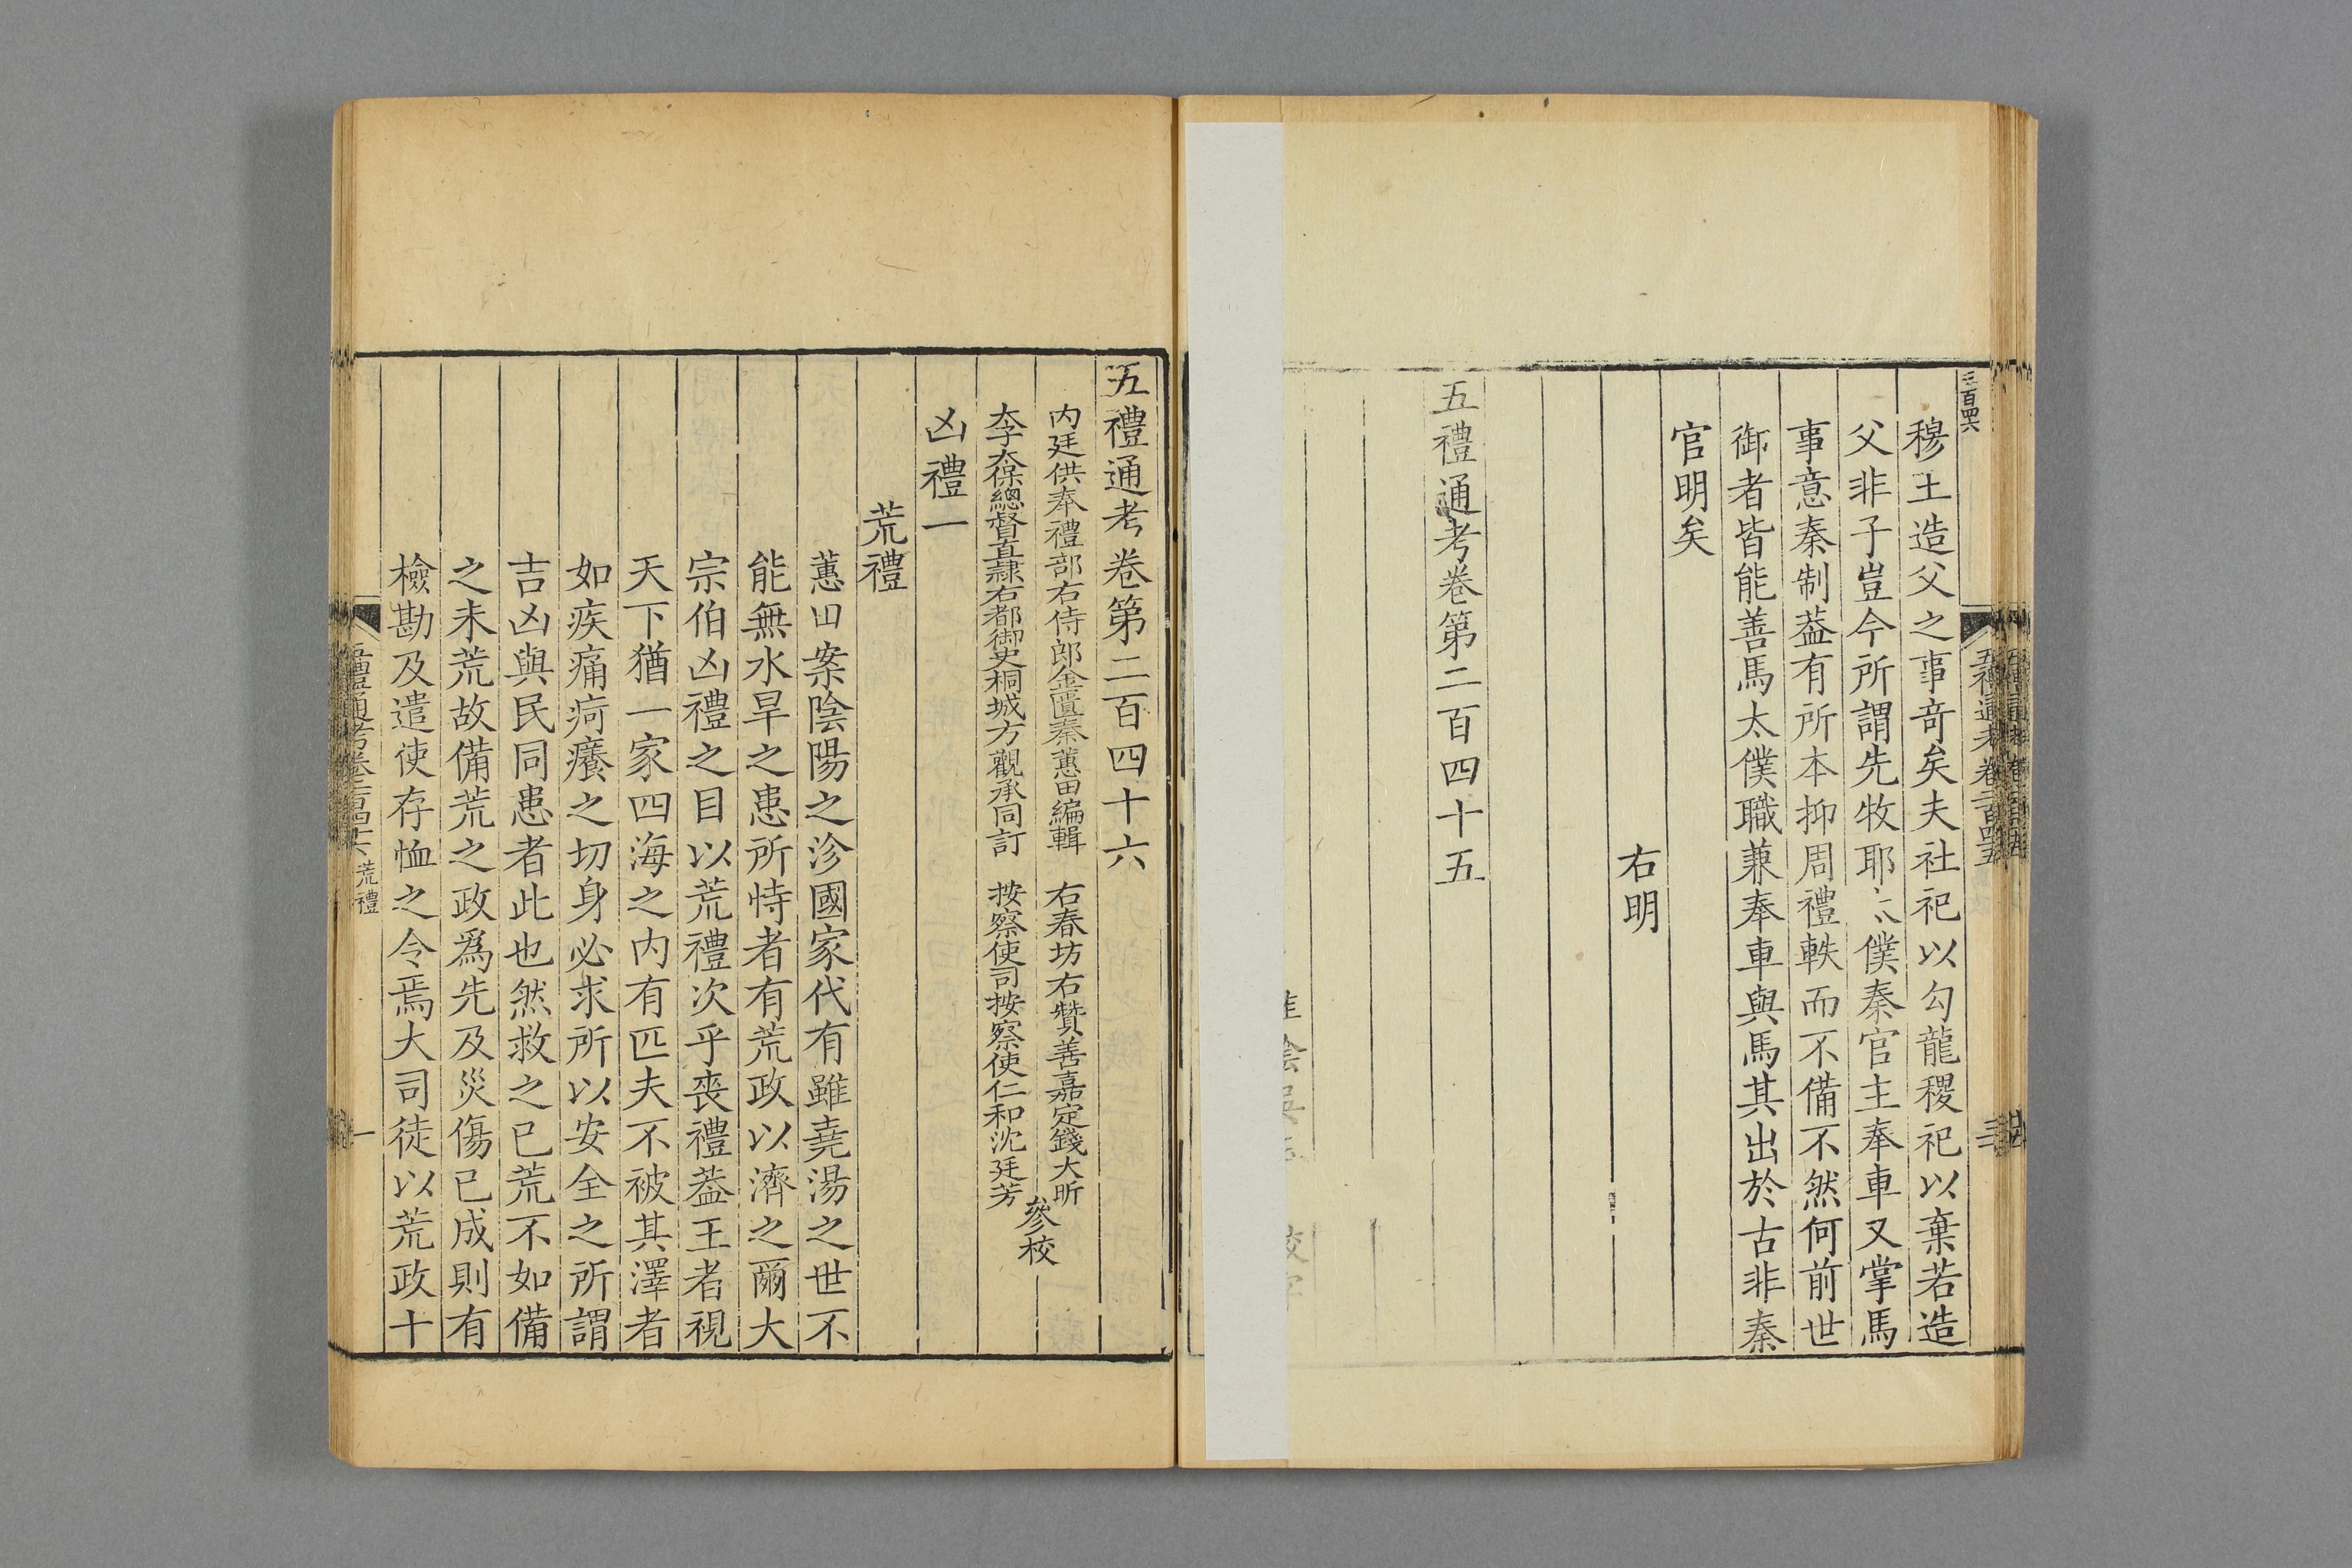 穆王造父之事竒矣夫社祀以勾龍稷祀以棄若造
父非子豈今所謂先牧耶太僕秦官主奉車又掌馬
事意秦制葢有所本抑周禮軼而不備不然何前世
御者皆能善馬太僕職兼奉車與馬其出於古非秦
官明矣
右明
五禮通考卷第二百四十五
五禮通考卷第二百四十六
内廷供奉禮部右侍郎金匱秦蕙田編輯 右春坊右贊善嘉定錢大昕
太子太保總督直隸右都御史桐城方觀承同訂 按察使司按察使仁和沈廷芳
參校
凶禮一
荒禮
蕙田案陰陽之沴國家代有雖堯湯之世不
能無水旱之患所恃者有荒政以濟之爾大
宗伯凶禮之目以荒禮次乎喪禮葢王者視
天下猶一家四海之内有匹夫不被其澤者
如疾痛疴癢之切身必求所以安全之所謂
吉凶與民同患者此也然救之已荒不如備
之未荒故備荒之政爲先及災傷已成則有
檢勘及遣使存恤之令焉大司徒以荒政十
五禮通考卷二百四十六 荒禮
一